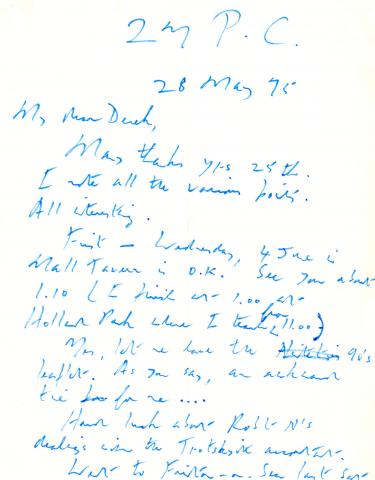 24 P. C.
28 May 75
My dear Derek,
Many thanks yrs 25th.
I note all the various points.
All interesting.
First — Wednesday, 4 June is
Mall Tavern is O.K. See you about
1.10 (I finish at 1.00 at
Holland Park where I teach from 11.00)
Yes, let me have the 90's
leaflet. As you say, an awkward
tie for me ....
Hard luck about Robt N's
dealings with the Trotskyite accountant.
Went to Frinton-on-Sea last Sat